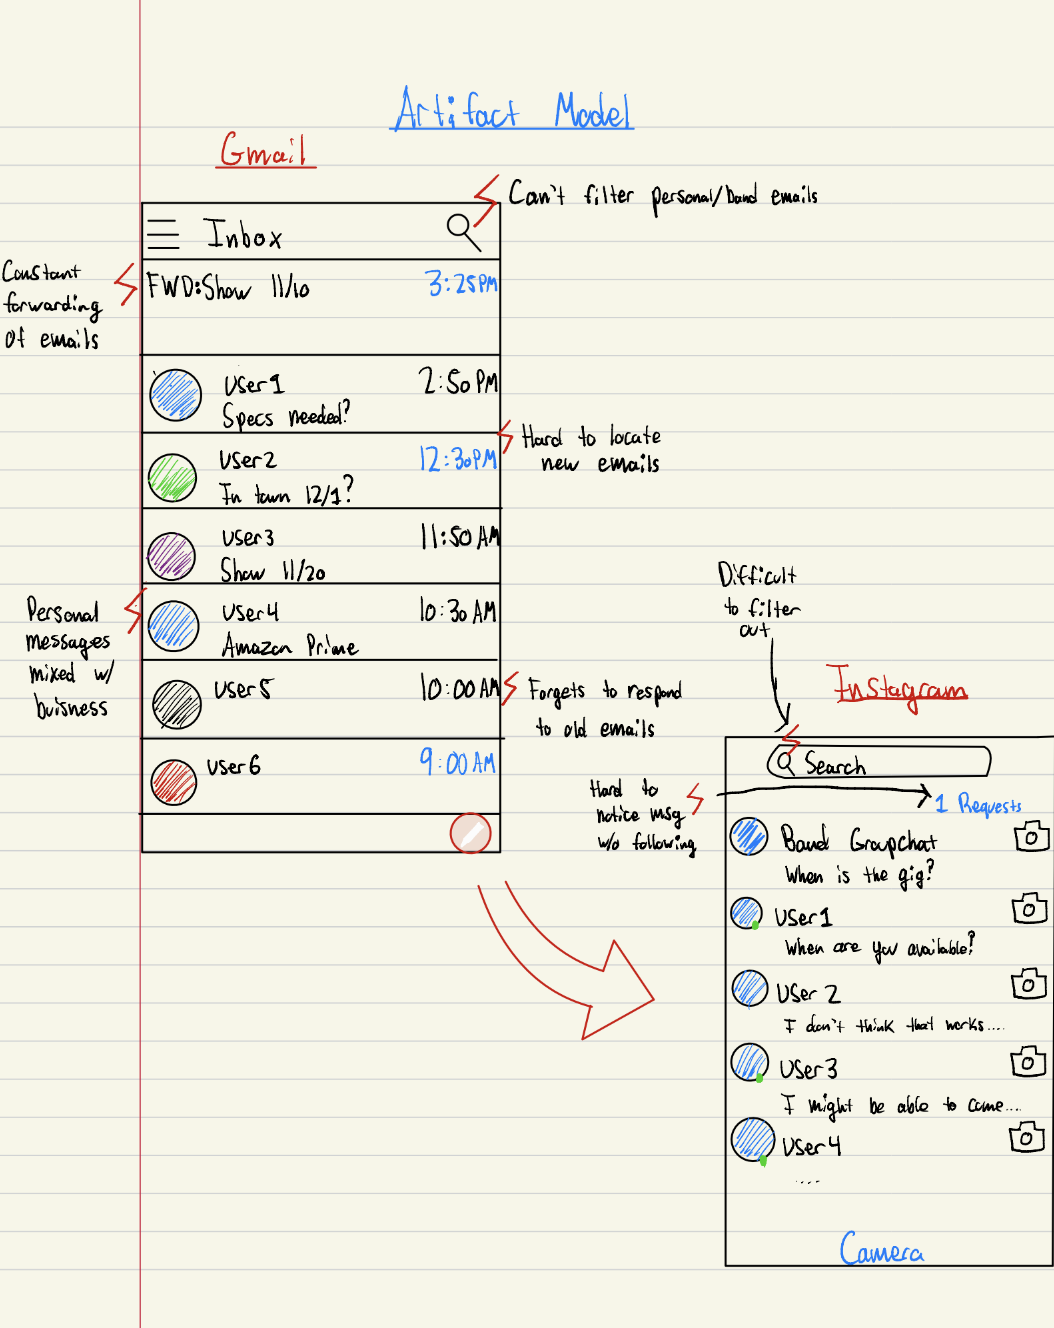 Artifact Model
Gmail
Can't filter personal/band emails
Inbox
Constant
forwarding
of emails
FWD:Show 11/10 3:25PM
User1 2:50 PM
Specs needed?
Hard to locate
new emails
User2 12:30PM
In town 12/1?
User3 11:50 AM
Show 11/20
Personal
messages
mixed w/
buisness
User4 10:30 AM
Amazon Prime
User5 10:00 AM
Forgets to respond
to old emails
User6 9:00 AM
Difficult
to filter
out
Instagram
Search
Hard to
notice msg
w/o following
1 Requests
Band Groupchat
When is the gig?
User1
When are you available?
User 2
I don't think that works....
User3
I might be able to come....
User4
....
Camera